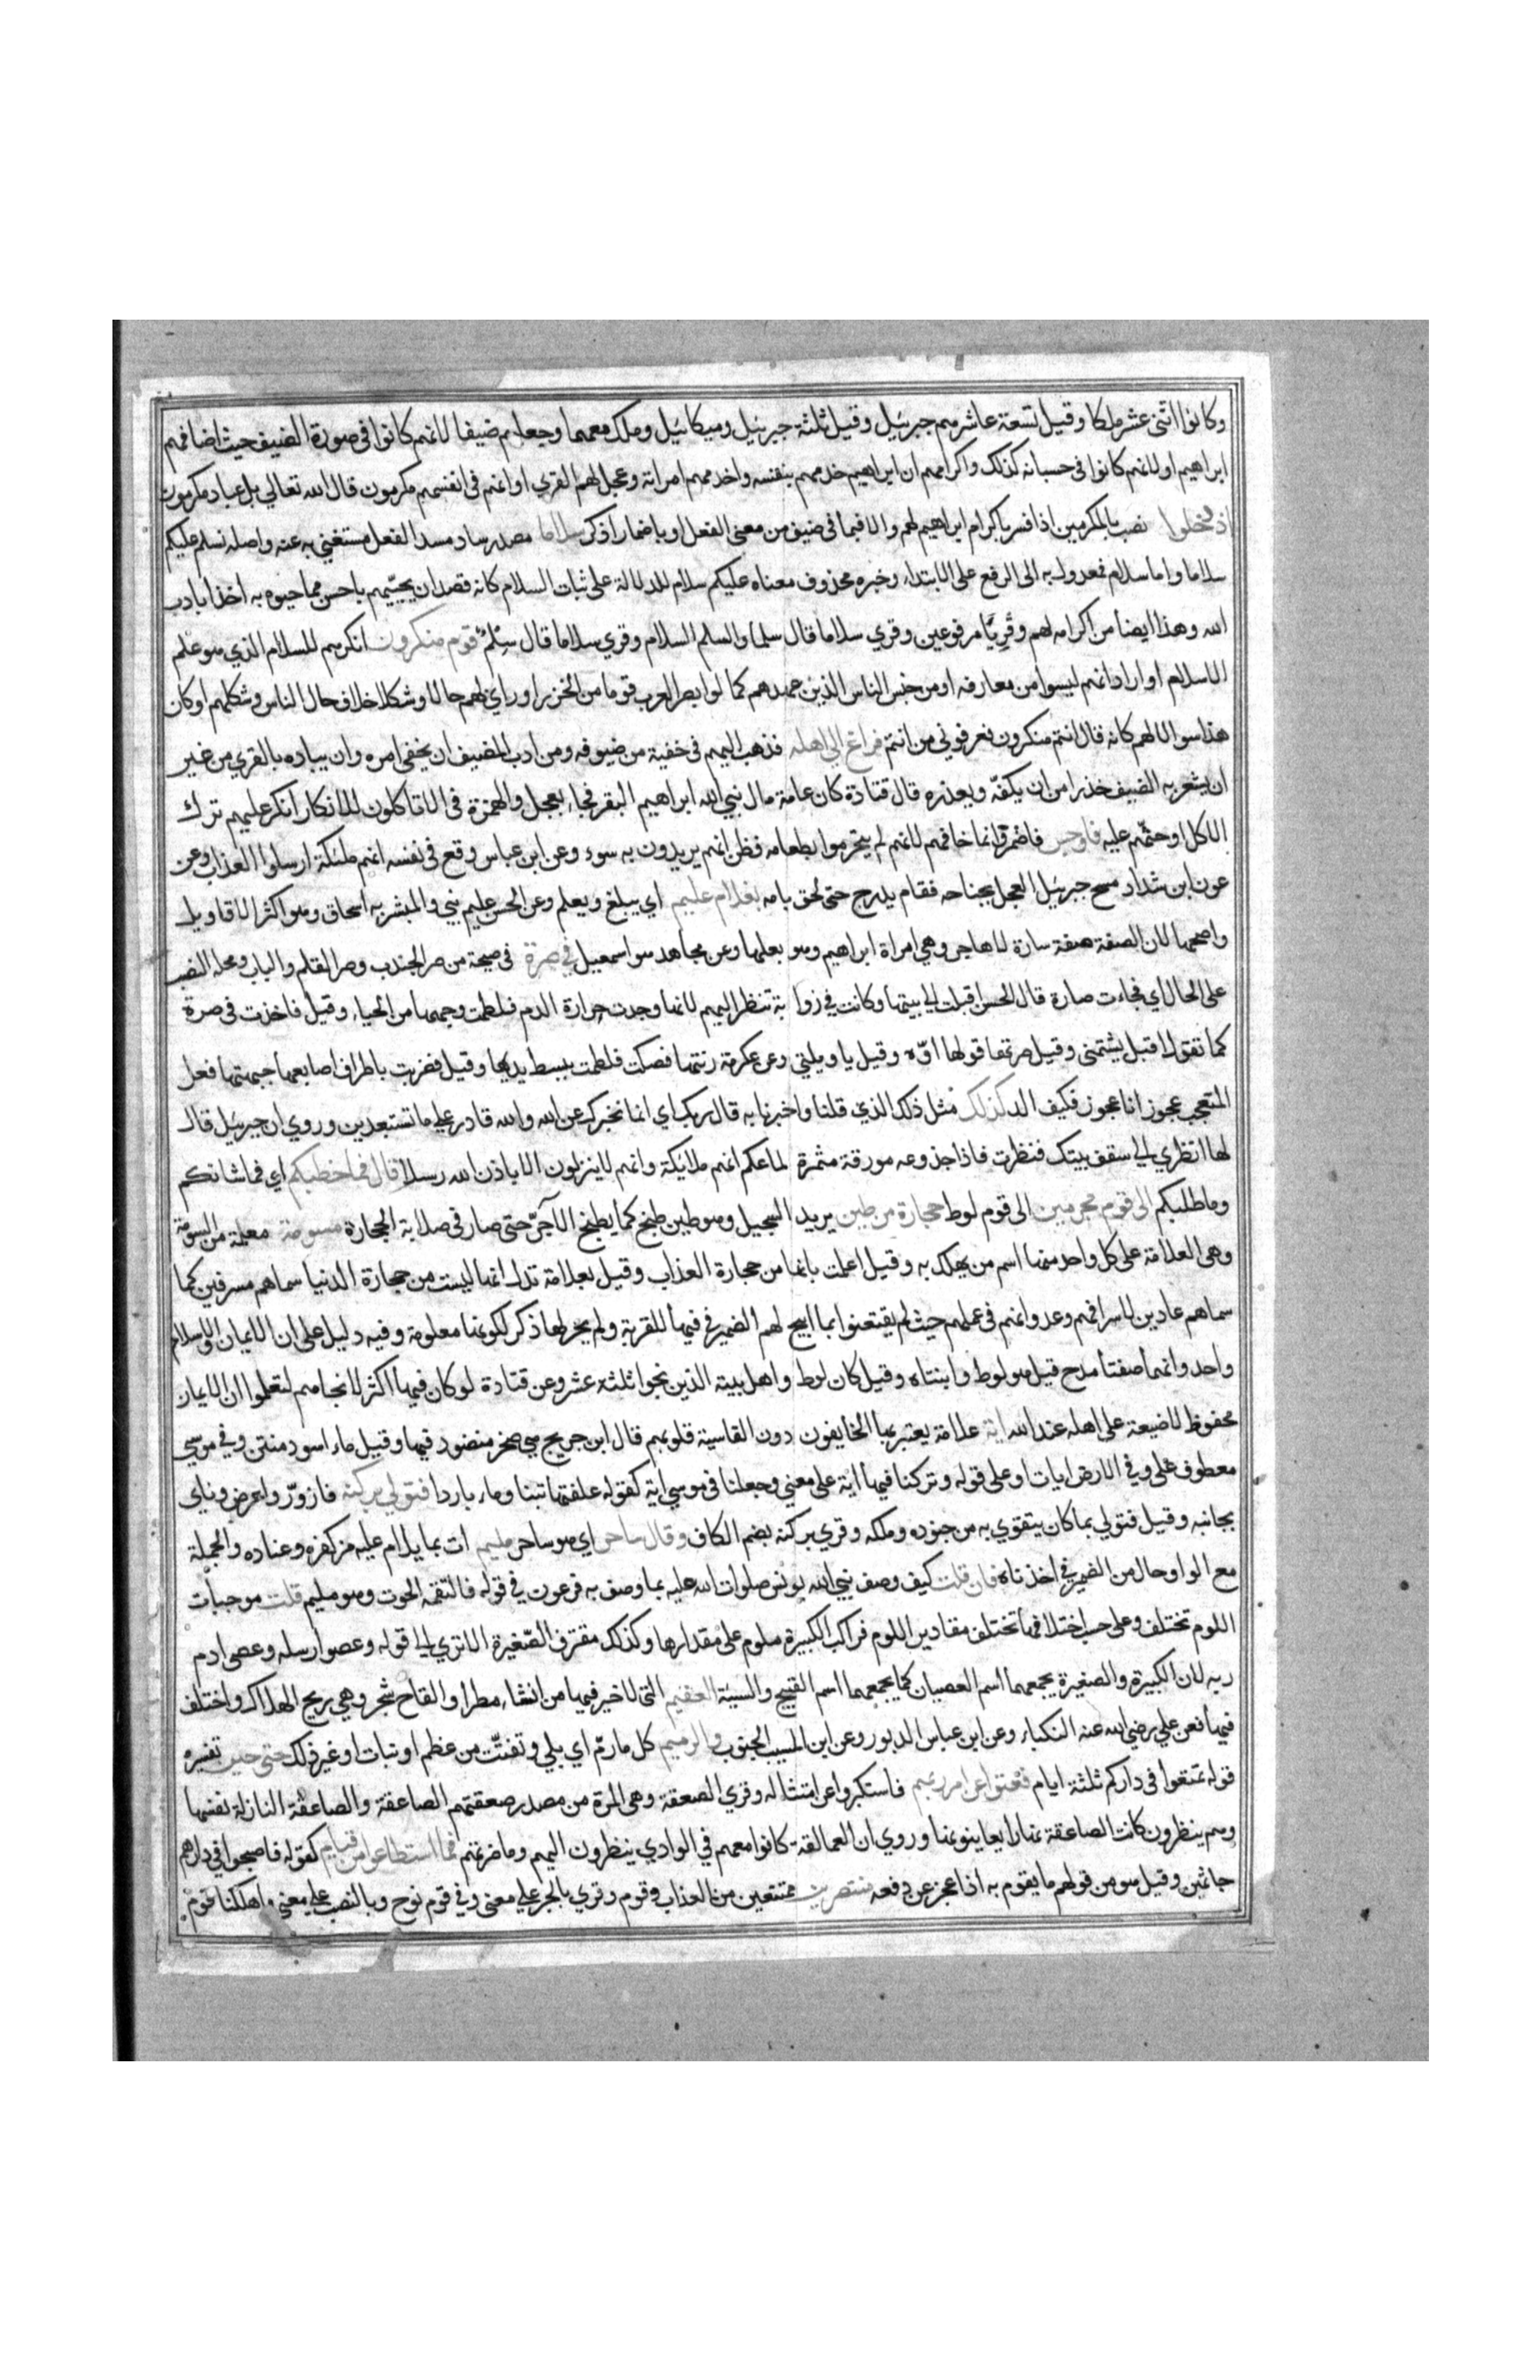 وكانوا اثنى عشر ملكا وقيل تسعة عاشرهم جبرئيل وقيل ثلثة جبرئيل وميكائيل وملك معهما وجعلهم ضيفا لانهم كانوا فى صورة الضيف حيث اضافهم
ابراهيم او لانهم كانوا فى حسبانه كذلك واكرامهم ان ابراهيم خدمهم بنفسه واخدمهم امراته وعجل لهم القري او انهم فى انفسهم مكرمون قال الله تعالي بل عباد مكرمون
اذ دخلوا نصب بالمكرمين اذا فسر باكرام ابراهيم لهم والا فبما فى ضيف من معنى الفعل او باضمار اذكر سلاما مصدر ساد مسد الفعل مستغني به عنه واصله نسلم عليكم
سلاما واما سلام فمعدول به الى الرفع على الابتداء وخبره محذوف معناه عليكم سلام للدلالة على ثبات السلام كانه قصد ان يحيّيهم باحسن مما حيوه به اخذا بادب
الله وهذا ايضا من اكرامه لهم وقُرِيَا مرفوعين وقري سلاما قال سلما والسلم السلام وقري سلاما قال سِلْمٌ قوم منكرون انكرهم للسلام الذي هو علم
الاسلام او اراد انهم ليسوا من معارفه او من جنس الناس الذين عهدهم كما لو ابصر العرب قوما من الخزر او راي لهم حالا وشكلا خلاف حال الناس وشكلهم او كان
هذا سوالا لهم كانه قال انتم منكرون فعرفوني من انتم فراغ الي اهله فذهب اليهم فى خفية من ضيوفه ومن ادب المضيف ان يخفي امره وان يباده بالقري من غير
ان يشعر به الضيف حذرا من ان يكفّه ويعذره قال قتادة كان عامة مال نبي الله ابراهيم البقر فجاء بعجل والهمزة فى الا تاكلون للانكار انكر عليهم ترك
الاكل او حثهم عليه فاوجس فاضمر وانما خافهم لانهم لم يتحرموا بطعامه فظن انهم يريدون به سوء وعن ابن عباس وقع فى نفسه انهم ملئكة ارسلوا للعذاب وعن
عون ابن شداد مسح جبرئيل العجل بجناحه فقام يدرج حتى لحق بامه بغلام عليم اي يبلغ ويعلم وعن الحسن عليم نبي والمبشر به اسحاق وهو اكثر الاقاويل
واصحها لان الصفة صفة سارة لا هاجر وهي امراة ابراهيم وهو بعلها وعن مجاهد هو اسمعيل في صرة فى صيحة من صر الجندب وصر القلم والباب ومحله النصب
على الحال اي فجاءت صارة قال الحسن اقبلت الي بيتها وكانت في زواية تنظر اليهم لانها وجدت حرارة الدم فلطمت وجهها من الحياء وقيل فاخذت فى صرة
كما تقول اقبل يشتمنى وقيل صرتها قولها اوّه وقيل يا ويلتي وعن عكرمة رنتها فصكت فلطمت ببسط يديها وقيل فضربت باطراف اصابعها جبهتها فعل
المتعجب عجوز انا عجوز فكيف الد كذلك مثل ذلك الذي قلنا واخبرنا به قال ربك اي انما نخبرك عن الله والله قادر علي ما تستبعدين وروي ان جبرئيل قال
لها انظري الي سقف بيتك فنظرت فاذا جذوعه مورقة مثمرة لما علم انهم ملائكة وانهم لا ينزلون الا باذن الله رسلا قال فما خطبكم اي فما شانكم
وما طلبكم الى قوم مجرمين الى قوم لوط حجارة من طين يريد السجيل وهو طين طبخ كما يطبخ الآجرّ حتى صار فى صلابة الحجارة مسومة معلمة من السومة
وهى العلامة على كل واحد منها اسم من يهلك به وقيل اعلمت بانها من حجارة العذاب وقيل بعلامة تدل انها ليست من حجارة الدنيا سماهم مسرفين كما
سماهم عادين لاسرافهم وعدوانهم فى عملهم حيث لم يقتنعوا بما ابيح لهم الضمير في فيها للقرية ولم يجر لها ذكر لكونها معلومة وفيه دليل على ان الايمان والاسلام
واحد وانهما صفتا مدح قيل هو لوط وابنتاه وقيل كان لوط واهل بيته الذين نجوا ثلثة عشر وعن قتادة لو كان فيها اكثر لانجاهم لتعلموا ان الايمان
محفوظ لا ضيعة على اهله عند الله اية علامة يعتبر بها الخايفون دون القاسية قلوبهم قال ابن جريج هي صخر منضود فيها وقيل ماء اسود منتن وفي موسي
معطوف على وفي الارض ايات او على قوله وتركنا فيها اية على معني وجعلنا فى موسي اية كقوله علفتها تبنا وماء باردا فتولي بركنه فازورّ واعرض وناي
بجانبه وقيل فتولي بما كان يتقوي به من جنوده وملكه وقري بركنه بضم الكاف وقال ساحر اي هو ساحر مليم ات بما يلام عليه من كفره وعناده والجملة
مع الواو حال من الضمير في اخذناه فان قلت كيف وصف نبي الله يونس صلوات الله عليه بما وصف به فرعون في قوله فالتقمه الحوت وهو مليم قلت موجبات
اللوم تختلف وعلى حسب اختلافها تختلف مقادير اللوم فراكب الكبيرة ملوم على مقدارها وكذلك مقترف الصّغيرة الا تري الي قوله وعصوا رسله وعصى ادم
ربه لان الكبيرة والصغيرة يجمعهما اسم العصيان كما يجمعهما اسم القبيح والسيئة العقيم التى لا خير فيها من انشاء مطر او القاح شجر وهي ريح الهلاك واختلف
فيها فعن علي رضي الله عنه النكباء وعن ابن عباس الدبور وعن ابن المسيب الجنوب والرميم كل ما رمّ اي بلي وتفتّت من عظم او نبات او غير ذلك حتى حين تفسيره
قوله تمتعوا فى داركم ثلثة ايام فعتوا عن امر ربهم فاستكبروا عن امتثاله وقري الصعقة وهى المرة من مصدر صعقتهم الصاعقة والصاعقة النازلة نفسها
وهم ينظرون كانت الصاعقة نهارا يعاينونها وروي ان العمالقة كانوا معهم في الوادي ينظرون اليهم وما ضرتهم فما استطاعوا من قيام كقوله فاصبحوا في دارهم
جاثمين وقيل هو من قولهم ما يقوم به اذا عجز عن دفعه منتصرين ممتنعين من العذاب وقوم وقري بالجر على معنى وفي قوم نوح وبالنصب على معني واهلكنا قوم